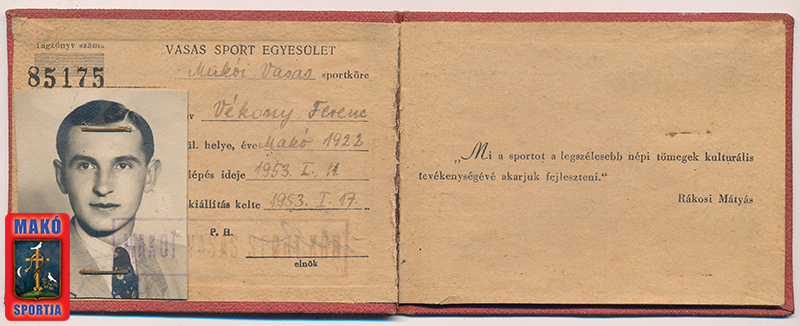 Tagkönyv száma
85175
VASAS SPORT EGYESÜLET
Makói Vasas sportköre
év Vékony Ferenc
ül. helye, éve Makó 1922
lépés ideje 1953. I. 11
kiállítás kelte 1953. I. 17.
P. H.
elnök
MAKÓ
SPORTJA
„Mi a sportot a legszélesebb népi tömegek kulturális
tevékenységévé akarjuk fejleszteni."
Rákosi Mátyás